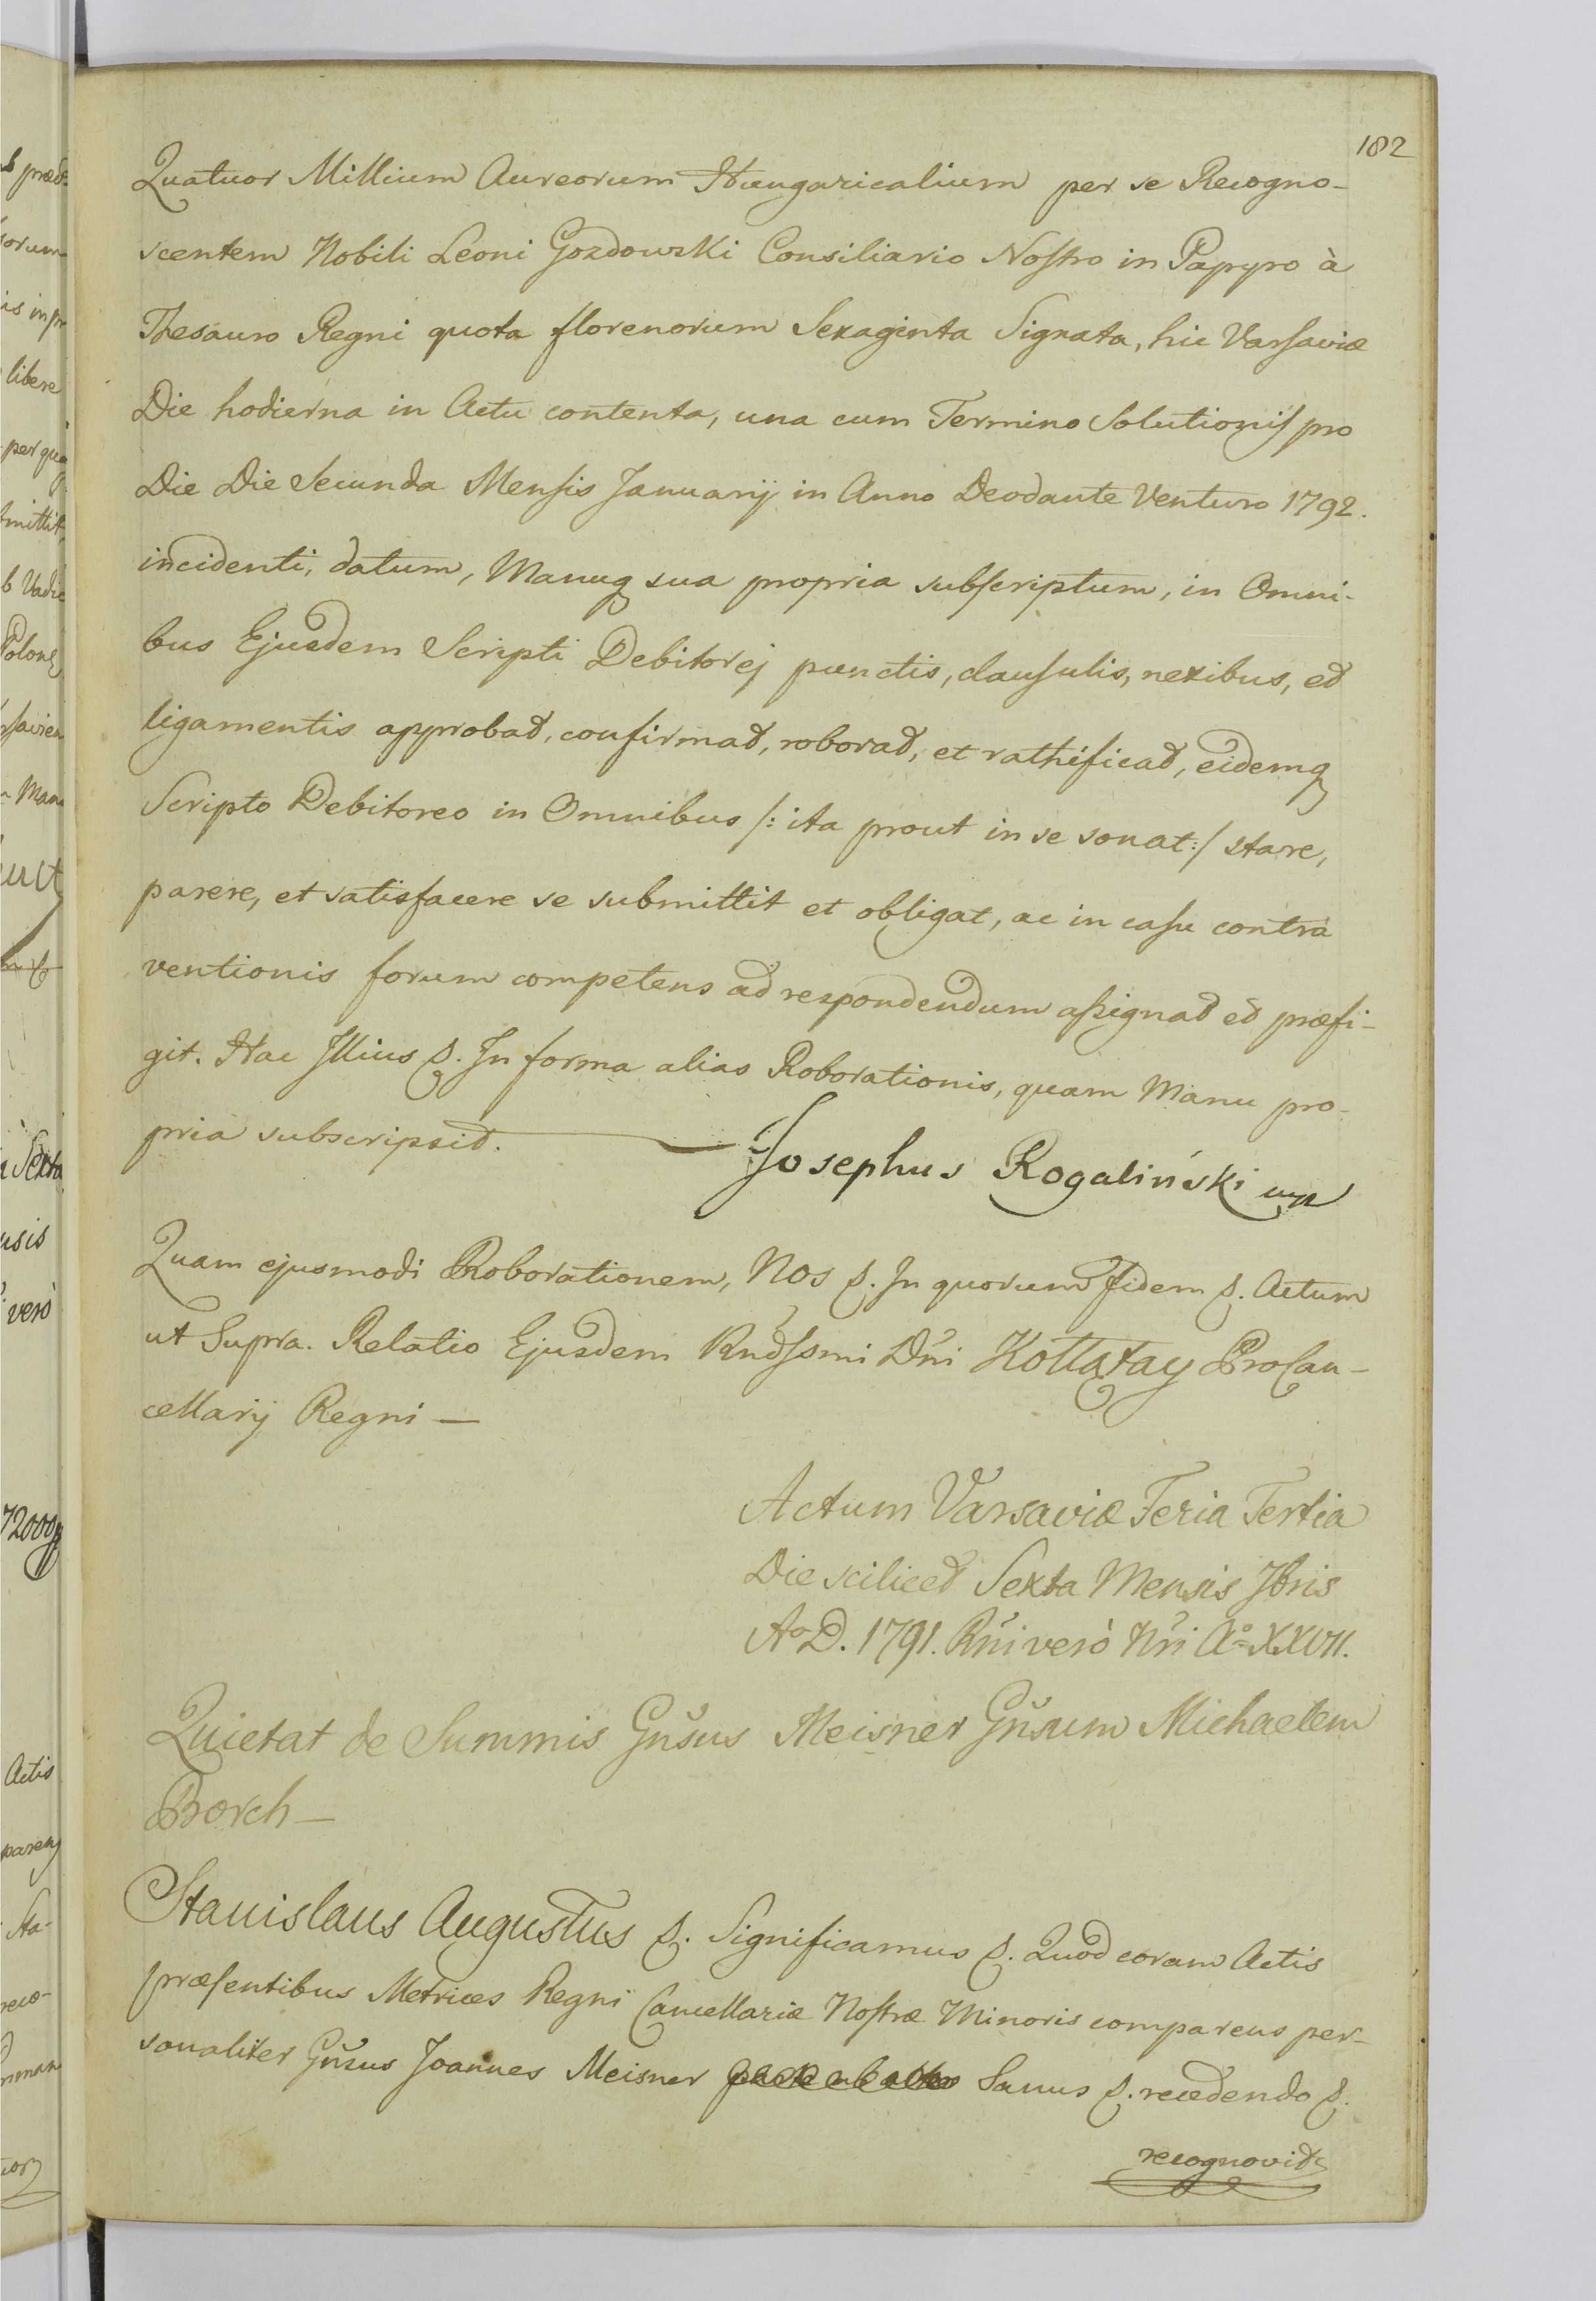 182
Quatuor Millium Aureorum Hungaricalium per se Recogno-
scentem Nobili Leoni Gozdowski Consiliario Nostro in Papyro à
Thesauro Regni quota florenorum Sexaginta Signata, hic Varsaviæ
Die hodierna in Actu contenta, una cum Termino Solutionis pro
Die Die Secunda Mensis Januarij in Anno Deodante Venturo 1792.
incidenti, datum, Manuq sua propria subscriptum, in Omni-
bus Ejusdem Scripti Debitorej punctis, clausulis, nexibus, et
ligamentis approbat, confirmat, roborat, et rathificat, eidemq
Scripto Debitoreo in Omnibus /: ita prout in se sonat :/ stare,
parere, et satisfacere se submittit et obligat, ac in casu contra
ventionis forum competens ad respondendum assignat et præfi-
git. Hac Illius &. In forma alias Roborationis, quam Manu pro-
pria subscripsit. — Josephus Rogaliński mp
Quam ejusmodi Roborationem, Nos &. In quorum fidem &. Actum
ut Supra. Relatio Ejusdem Rndssmi Dni Kołłątay ProCan-
cellarij Regni —
Actum Varsaviæ Feria Tertia
Die scilicet Sexta Mensis 7bris
Ao D. 1791. Rni verò Nri Ao XXVII.
Quietat de Summis Gnsus Meisner Gnsum Michaelem
Borch —
Stanislaus Augustus &. Significamus &. Quod coram Actis
præsentibus Metrices Regni Cancellariæ Nostræ Minoris comparens per-
sonaliter Gnsus Joannes Meisner Sanus &. recedendo &.
recognovit